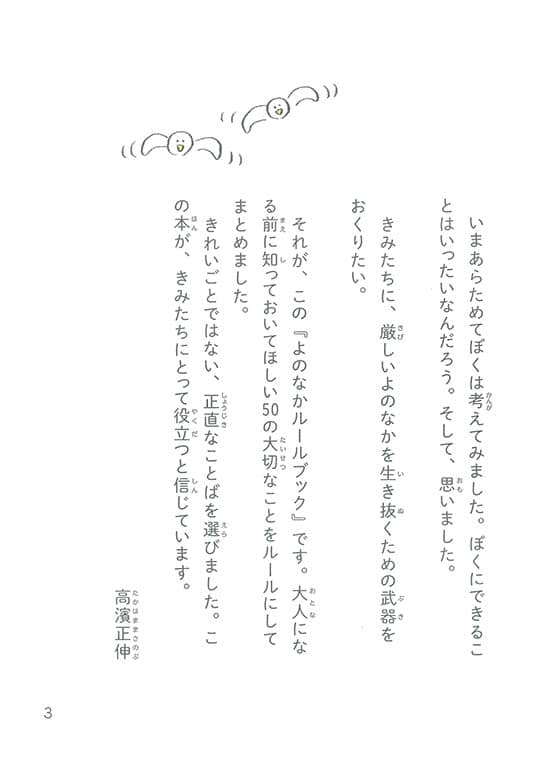 いまあらためてぼくは考えてみました。ぼくにできるこ
とはいったいなんだろう。そして、思いました。
きみたちに、厳しいよのなかを生き抜くための武器を
おくりたい。
それが、この『よのなかルールブック』です。大人にな
る前に知っておいてほしい50の大切なことをルールにして
まとめました。
きれいごとではない、正直なことばを選びました。こ
の本が、きみたちにとって役立つと信じています。
高濱正伸
3